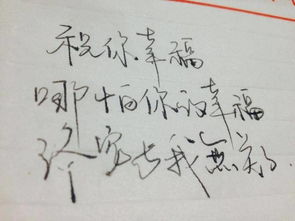 祝你幸福
哪怕你的幸福
终究与我無关